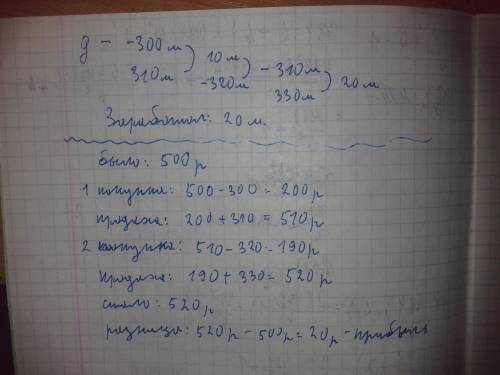 д - -300м
310м ) 10м
-320м ) -310м
330м ) 20м
Заработал: 20 м.
было: 500р
1 покупка: 500-300=200р
продажа: 200+310=510р
2 покупка: 510-320-190р
продажа: 190+330=520р
стало: 520р
разница: 520р-500р=20р-прибыль